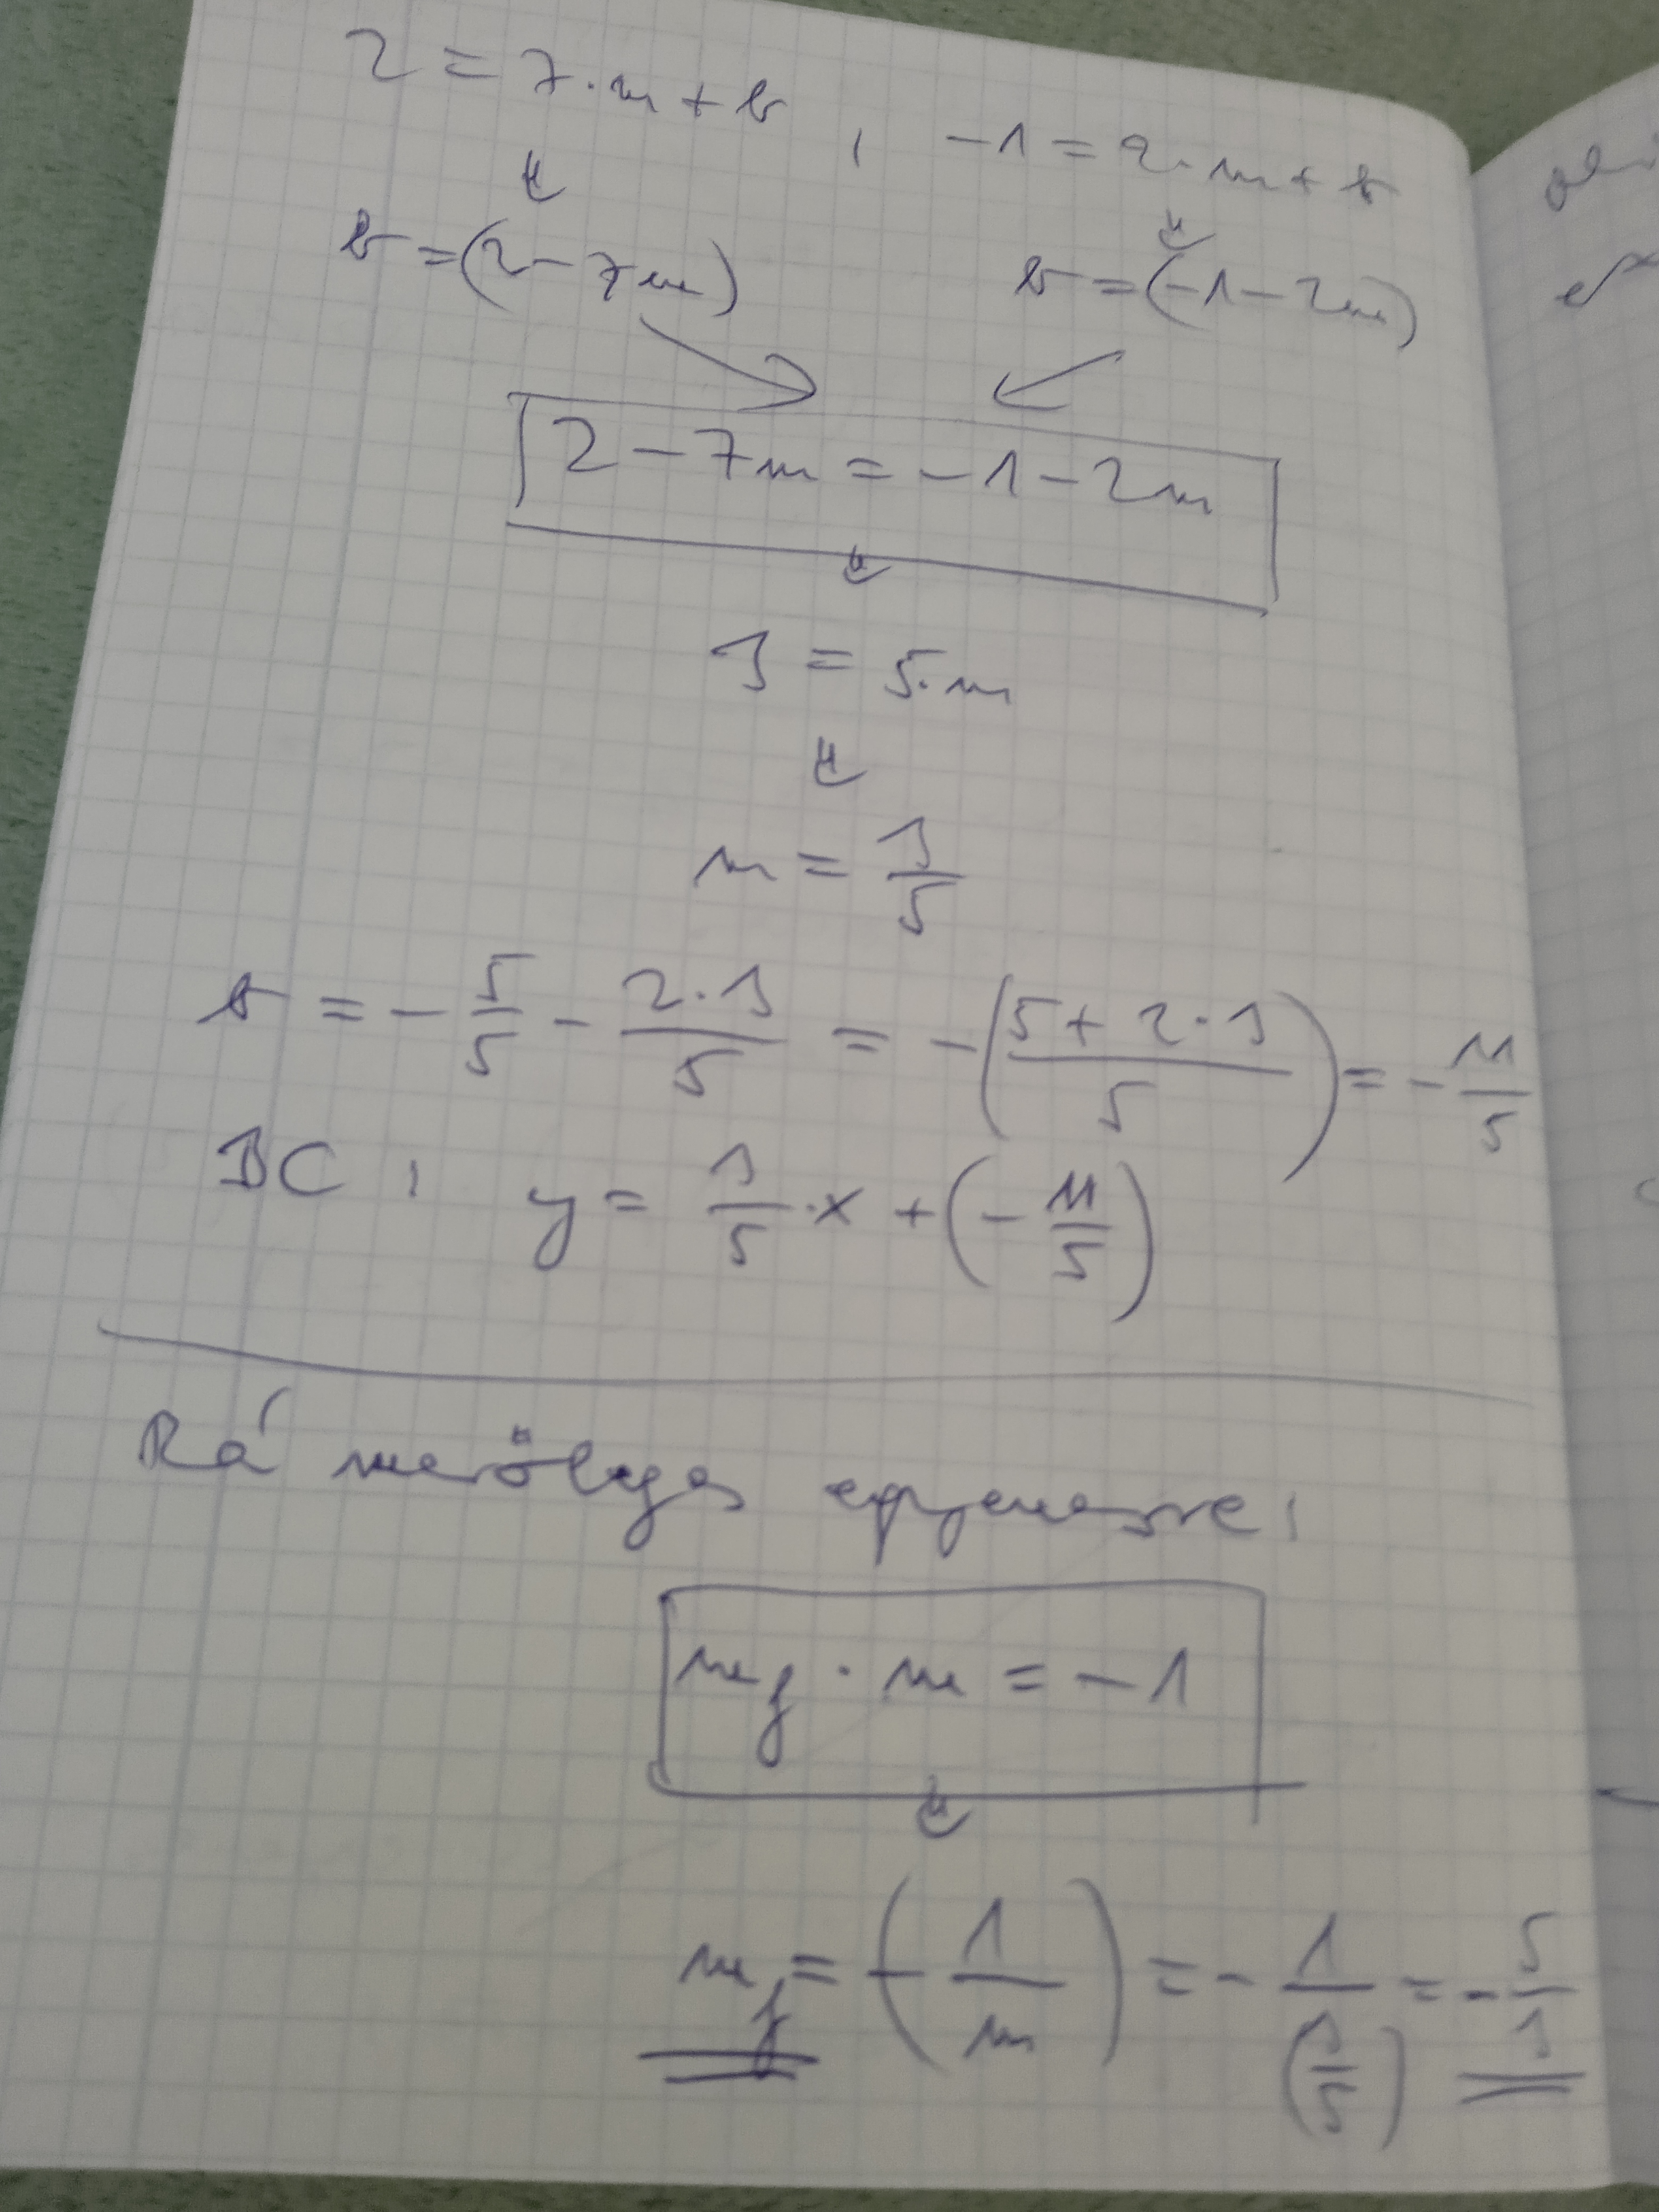 2 = 7·m + b , -1 = 2·m + b
⇓ ⇓
b = (2 - 7m) b = (-1 - 2m)
2 - 7m = -1 - 2m
⇓
3 = 5·m
⇓
m = 3/5
b = - 5/5 - 2·3/5 = - (5 + 2·3 / 5) = - 11/5
BC: y = 3/5 · x + (- 11/5)
Rá merőleges egyenesre:
m_f · m = -1
⇓
m_f = (- 1/m) = - 1/(3/5) = - 5/3